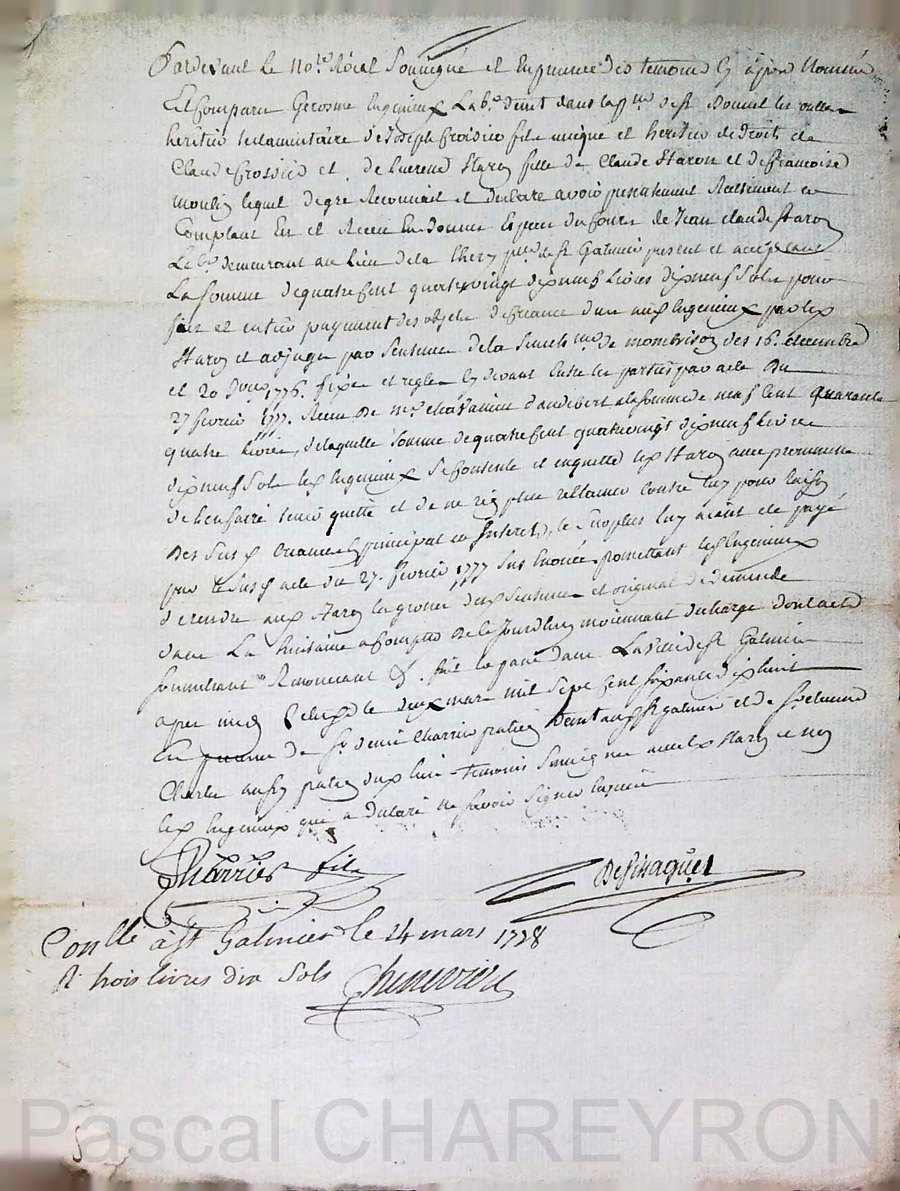 Pardevant Le No.re Roial Soussigné et En presence des temoins cy apres Nommés
Est Comparu Gerosme Ingenieux La.b.r
heritier testamentaire de Joseph froissier fils unique et heritier de droit de
Claude frossier et de Staron fille de Claude Staron et de francoise
moulin lequel de gre Reconnait et declare avoir presentement Reellement
Comptant Eu et Receu En bonnes Especes du Cours de Jean Claude Staron
Le b.r demeurant au Lieu de la p.sse de St Galmier present et acceptant
La somme de quatre cent quatrevingt dixneuf Livres dixneuf Sols pour
et entier payement des objets de creance due aux Ingenieux par led
Staron et adjugés par Sentence de la Senech.ée de montbrison des 16. decembre
et 20 1776. fixés et reglés cy devant Entre les parties par acte du
27 fevrier 1777. Receu de m.e a la somme de neuf Cent quarante
quatre livres, de laquelle somme de quatre Cent quatrevingt dixneuf Livres
dixneuf Sols led Ingenieux Se Contente et en quitte led Staron avec promesse
de l'en faire tenir quitte et de ne rien plus reclamer contre luy pour raison
des Susd creances principal et Interets, le Surplus luy aiant ete payé
par le Susd acte du 27. fevrier 1777 Sus Enoncé, promettant led Ingenieux
de rendre aud Staron les grosses desd Sentences et original de demande
dans La huitaine a Compter de ce Jourdhuy moiennant decharge dont acte
Soumettant Renoncant &. fait et passé dans La ville de St Galmier
apres midy Le deux mars mil Sept Cent Soixante dixhuit
En presence de Sr denis Charrier praticien dud St Galmier et de Sr etienne
Charles aussy praticien dud lieu temoins Soussignés avec led Staron et non
led Ingenieux qui a declaré ne Savoir Signer
Charrier fils
Con.llé a St Galmier le 14 mars 1778
R trois livres dix Sols Cheneviere
Pascal CHAREYRON